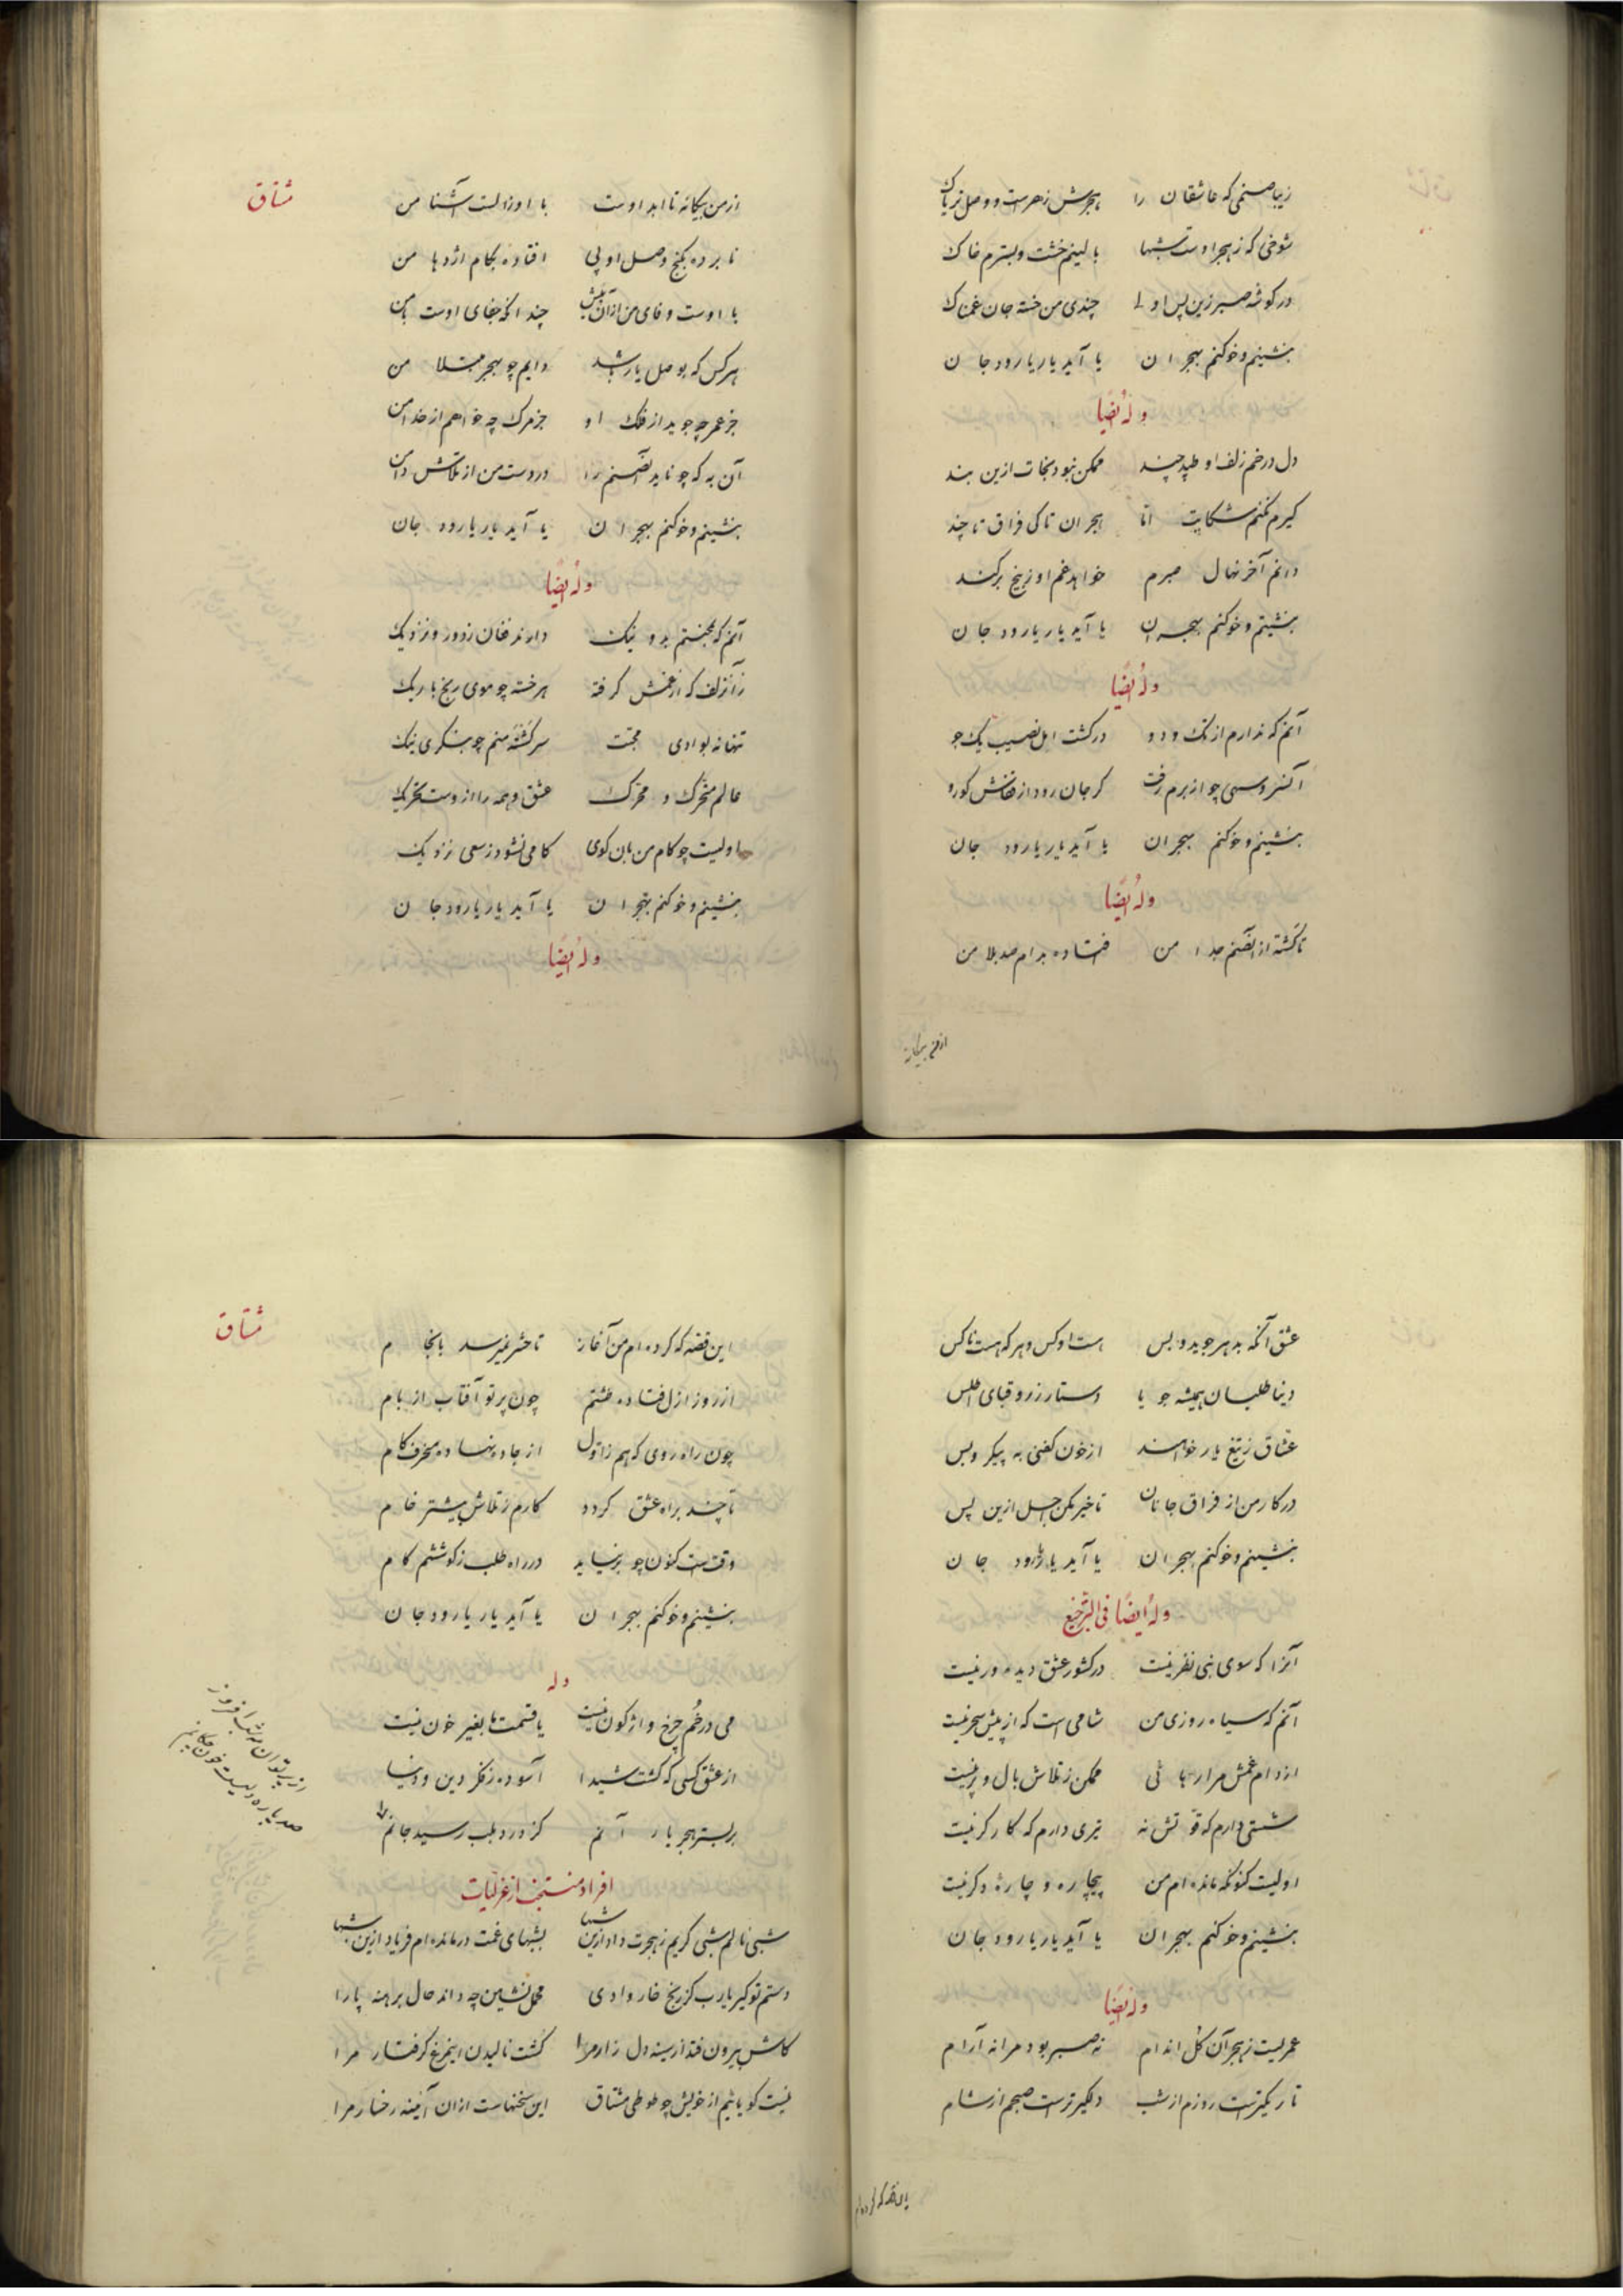 زیبا صنمی که عاشقان را هجرش زهرست و وصل تریاک
شوخی که ز هجر اوست شبها بالینم خشت و بسترم خاک
در کوشه صبر زین پس اولی چندی من خسته جان غمناک
بنشینم و خو کنم بهجران یا آید یار یا رود جان
وله ایضًا
دل در خم زلف او طپد چند ممکن نبود نجات ازین بند
کیرم نکنم شکایت اما هجران تا کی فراق تا چند
دانم آخر نهال صبرم خواهد غم او ز بیخ برکند
بنشینم و خو کنم بهجران یا آید یار یا رود جان
وله ایضًا
آنم که ندارم از تک و دو در کشت امل نصیب یک جو
آن سرو سهی چو از برم رفت کر جان رود از قفاش کو رو
بنشینم و خو کنم بهجران یا آید یار یا رود جان
وله ایضًا
تا کشته از آن صنم جدا من افتاده بدام صد بلا من
از من بیکانه
مشتاق
از من بیکانه تا ابد اوست با او ز الست آشنا من
نابرده بکنج وصل او پی افتاده بکام اژدها من
با اوست وفای من از آن بیش چندانکه جفای اوست با من
هر کس که بوصل یار باشد دایم چو بهجر مبتلا من
جز عمر چه جوید از فلک او جز مرک چه خواهم از خدا من
آن به که چو ناید آن صنم را در دست من از تلاش دامن
بنشینم و خو کنم بهجران یا آید یار یا رود جان
وله ایضًا
آنم که بمحنتم بد و نیک دارند فغان ز دور و نزدیک
زان زلف که از غمش کرفته هر خسته چو موی رنج باریک
تنها نه بوادی محبت سرکشته منم چو بنکری نیک
عالم متحرک و محرک عشق و همه را ازوست تحریک
اولیست چو کام من بآن کوی کامی نشود ز سعی نزدیک
بنشینم و خو کنم بهجران یا آید یار یا رود جان
وله ایضًا
عشق آنکه بدهر جوید و بس هست او کس و هر که هست ناکس
دنیا طلبان همیشه جویا دستار زر و قبای اطلس
عشاق ز تیغ یار خواهند از خون کفنی به پیکر و بس
در کار من از فراق جانان تاخیر مکن اجل ازین پس
بنشینم و خو کنم بهجران یا آید یار یا رود جان
وله ایضًا فی الترجیع
آنرا که سوی بتی نظر نیست در کشور عشق دیده‌ور نیست
آنم که سیاه روزی من شامی است که از پیش سحر نیست
از دام غمش مرا رهائی ممکن ز تلاش بال و پر نیست
شستی دارم که قوتش نه تیری دارم که کارکر نیست
اولیست کنونکه مانده‌ام من بیچاره و چارهٔ دکر نیست
بنشینم و خو کنم بهجران یا آید یار یا رود جان
وله ایضًا
عمریست ز هجر آن کل اندام نه صبر بود مرا نه آرام
تاریکترست روزم از شب دلکیرترست صبحم از شام
این قصه که کرده‌ام
مشتاق
این قصه که کرده‌ام من آغاز تا حشر نمیرسد بانجام
از روز ازل فتاده طشتم چون پرتو آفتاب از بام
چون راه‌روی که هم ز اول از جاده نهاده منحرف کام
تا چند براه عشق کردد کارم ز تلاش بیشتر خام
وقت است کنون چو برنیاید در راه طلب ز کوششم کام
بنشینم و خو کنم بهجران یا آید یار یا رود جان
وله
می در خم چرخ واژکون نیست یا قسمت ما بغیر خون نیست
از عشق کسی که کشت شیدا آسوده ز فکر دین و دنیا
بر بستر هجر یار آنم کز درد بلب رسید جانم
از پرتو آن مه شب افروز
صد پاره دلیست خون چکانم
افراد منتخب از غزلیات
شبی نالم شبی کریم ز هجرت داد ازین شبها بشبهای غمت درمانده‌ام فریاد ازین شبها
دستم تو کیر یارب کز رنج خار وادی محمل‌نشین چه داند حال برهنه پا را
کاش بیرون فتد از سینه دل زار مرا کشت نالیدن این مرغ کرفتار مرا
نیست کویائیم از خویش چو طوطی مشتاق این سخنهاست از آن آینه رخسار مرا